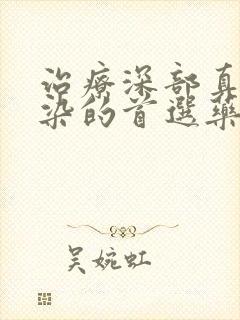 治療深部真
染的首選藥
吴婉虹